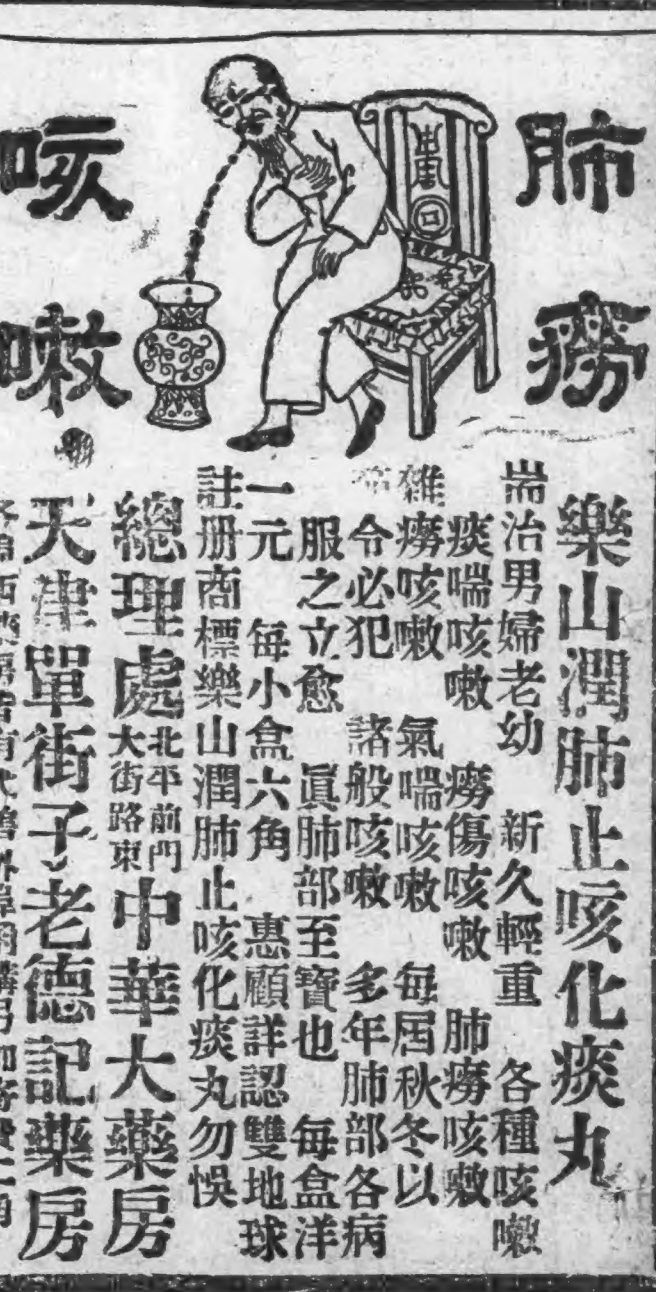 肺癆
咳嗽
樂山潤肺止咳化痰丸
耑治男婦老幼 新久輕重 各種咳嗽
痰喘咳嗽 癆傷咳嗽 肺癆咳嗽
雜癆咳嗽 氣喘咳嗽 每屆秋冬以
令必犯 諸般咳嗽 多年肺部各病
服之立愈 眞肺部至寶也 每盒洋
一元 每小盒六角 惠顧詳認雙地球
註册商標樂山潤肺止咳化痰丸勿悞
總理處 北平前門大街路東 中華大藥房
天津單街子老德記藥房